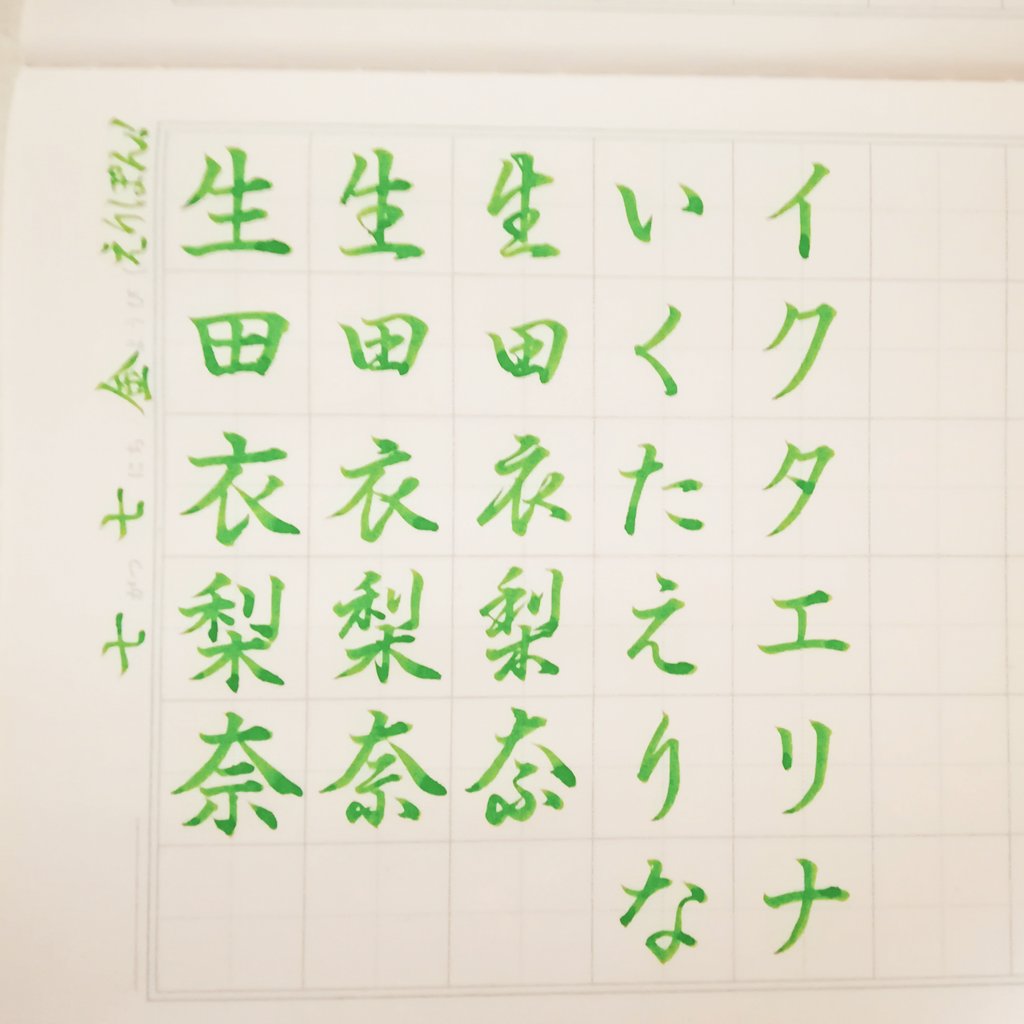 イクタエリナ
いくたえりな
生田衣梨奈
生田衣梨奈
生田衣梨奈
七がつ七にち金ようび えりぽん!